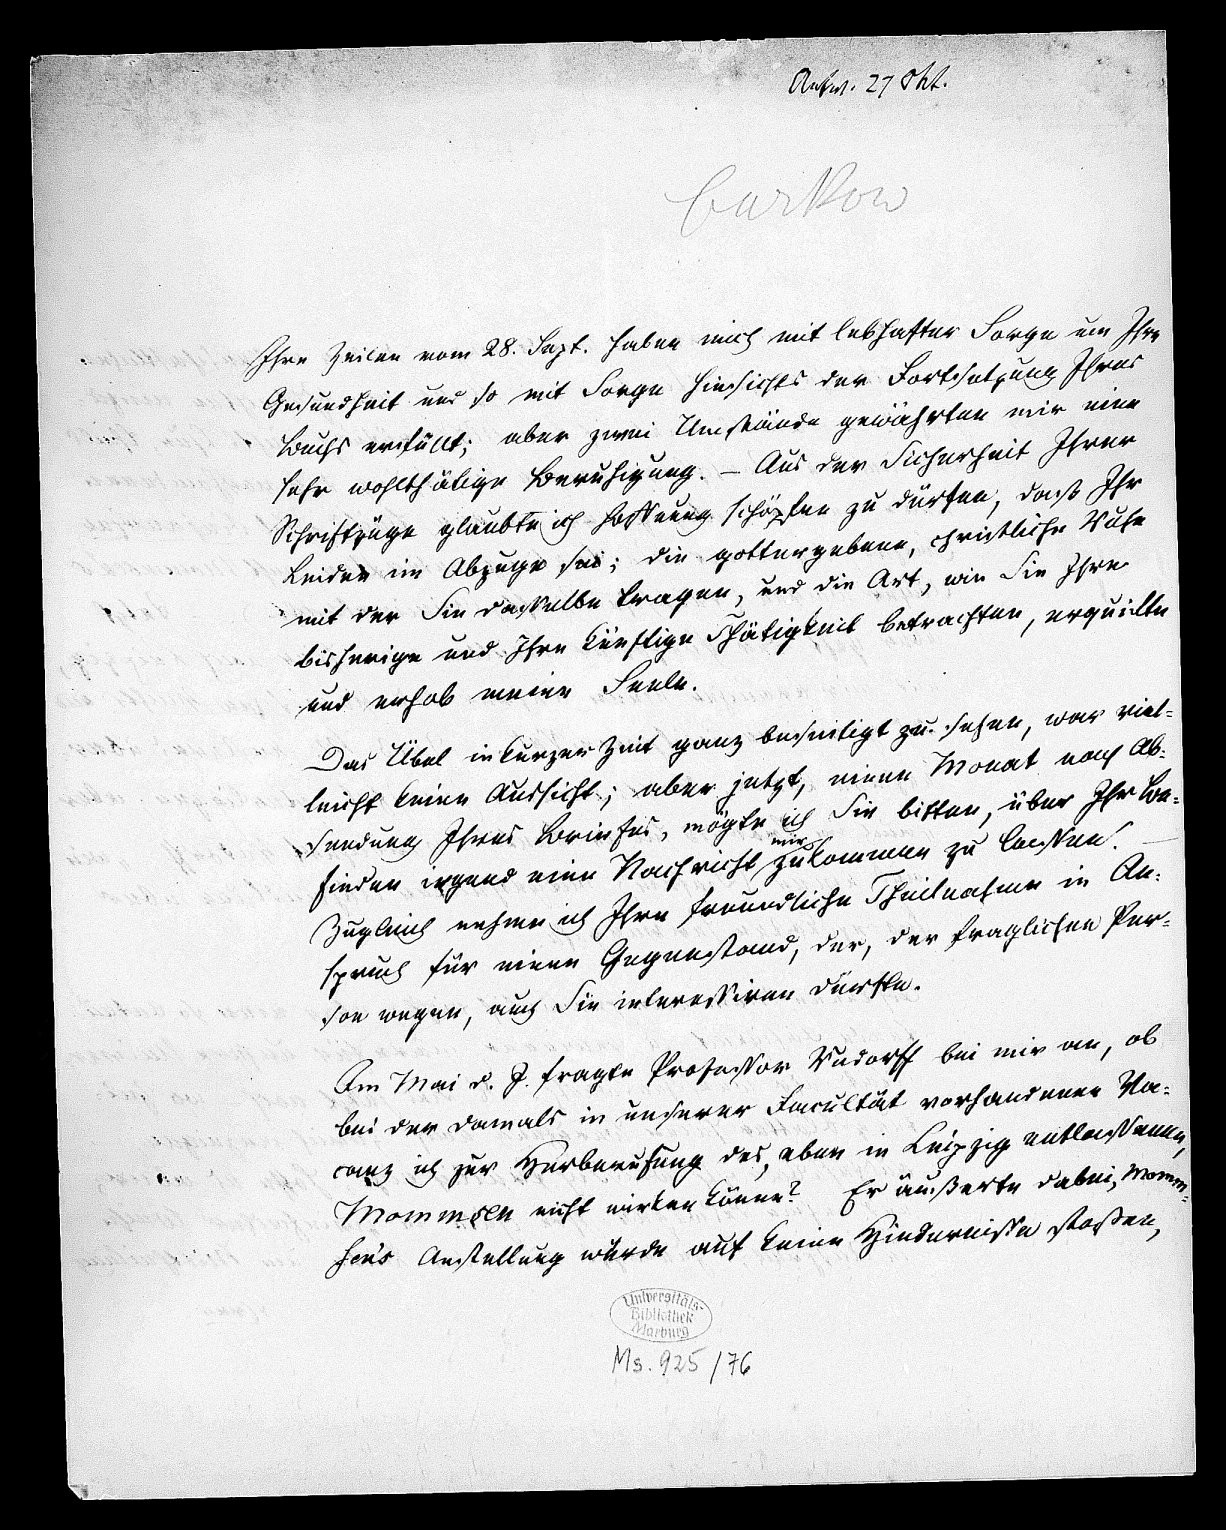 Antw. 27 Okt.
Barkow
Ihre Zeilen vom 28. Sept. haben mich mit lebhafter Sorge um Ihre
Gesundheit und so mit Sorge hinsichts der Fortsetzung Ihres
Buchs erfüllt; aber zwei Umstände gewährten mir eine
sehr wohlthätige Beruhigung. – Aus der Sicherheit Ihrer
Schriftzüge glaubte ich Hoffnung schöpfen zu dürfen, daß Ihr
Leiden im Abzuge sei; die gottergebene, christliche Ruhe
mit der Sie dasselbe tragen, und die Art, wie Sie Ihre
bisherige und Ihre künftige Thätigkeit betrachten, erquickte
und erhob meine Seele.
Das Übel in kurzer Zeit ganz beseitigt zu sehen, war viel-
leicht keine Aussicht; aber jetzt, einen Monat nach Ab-
sendung Ihres Briefes, mögte ich Sie bitten, über Ihr Be-
finden irgend eine Nachricht mir zukommen zu lassen. –
Zugleich nehme ich Ihre freundliche Theilnahme in An-
spruch für einen Gegenstand, der, der fraglichen Per-
son wegen, auch Sie interessiren dürfte.
Im Mai d. J. fragte Professor Rudorff bei mir an, ob
bei der damals in unserer Facultät vorhandenen Va-
canz ich zur Herberufung des, eben in Leipzig entlassenen,
Mommsen nicht wirken könne? Er äußerte dabei, Momm-
sen's Anstellung würde auf keine Hindernisse stoßen,
Universitäts-
Bibliothek
Marburg
Ms. 925/76